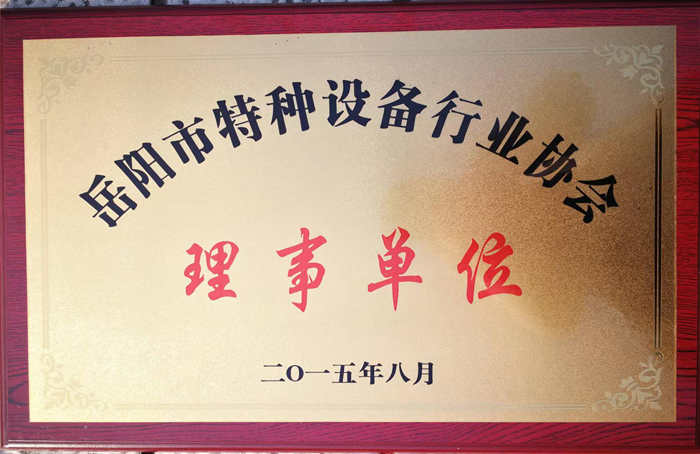 岳阳市特种设备行业协会
理事单位
二〇一五年八月